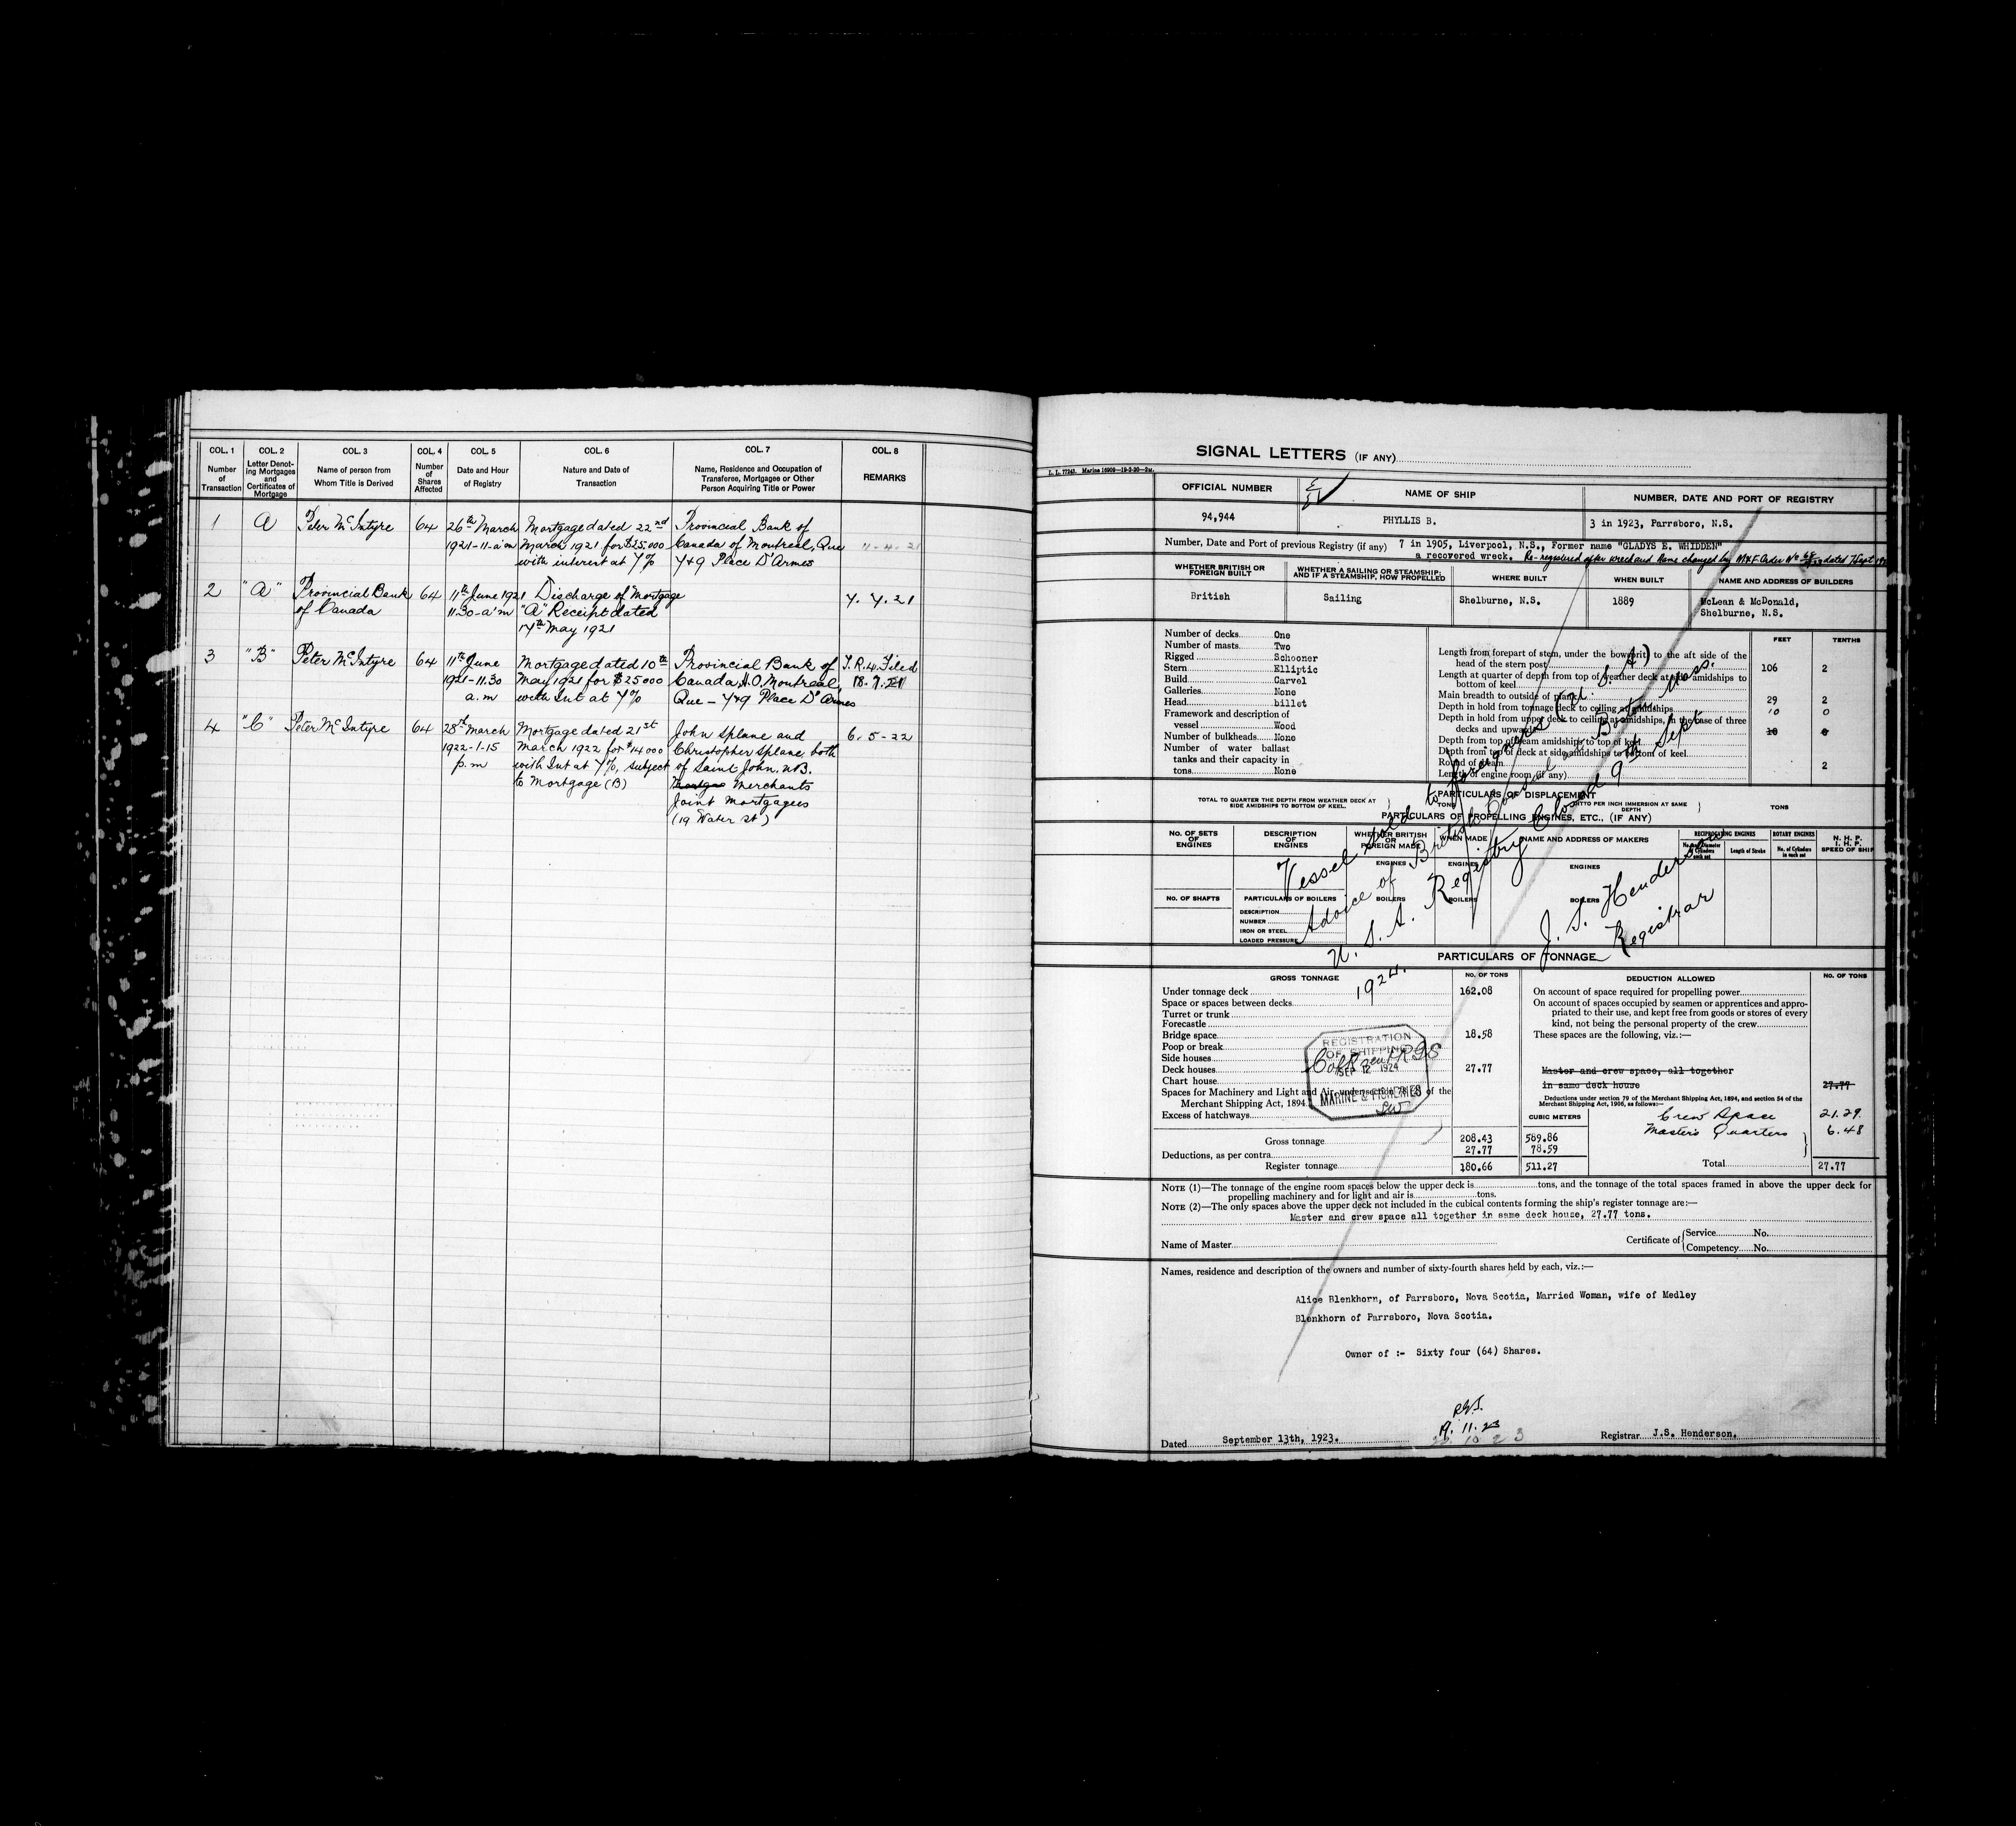 COL. 1 COL. 2 COL. 3 COL. 4 COL. 5 COL. 6 COL. 7 COL. 8
Number of Transaction
Letter Denoting Mortgages and Certificates of Mortgage
Name of person from Whom Title is Derived
Number of Shares Affected
Date and Hour of Registry
Nature and Date of Transaction
Name, Residence and Occupation of Transferee, Mortgagee or Other Person Acquiring Title or Power
REMARKS
1 A Peter McIntyre 64 26th March Mortgage dated 22nd Provincial Bank of
1921-11-a.m March 1921 for $25,000 Canada of Montreal, Que 11-4-21
with interest at 7% 7&9 Place D'Armes
2 "A" Provincial Bank 64 11th June 1921 Discharge of Mortgage 7.7.21
of Canada 11.30-a.m "A" Receipt dated
17th May 1921
3 "B" Peter McIntyre 64 11th June Mortgage dated 10th Provincial Bank of T.R.4 Filed
1921-11.30 May 1921 for $25000 Canada, H.O. Montreal, 18.7.21
a.m with Int at 7% Que - 7&9 Place D'Armes
4 "C" Peter McIntyre 64 28th March Mortgage dated 21st John Splane and 6.5-22
1922-1-15 March 1922 for $14000 Christopher Splane both
p.m with Int at 7%, subject of Saint John, N.B.
to Mortgage (B) Merchants
Joint Mortgagees
(19 Water St)
SIGNAL LETTERS (IF ANY)
L. L. 77243. Marine 16909—19-2-20—2M.
OFFICIAL NUMBER NAME OF SHIP NUMBER, DATE AND PORT OF REGISTRY
94,944 PHYLLIS B. 3 in 1923, Parrsboro, N.S.
Number, Date and Port of previous Registry (if any) 7 in 1905, Liverpool, N.S., Former name "GLADYS E. WHIDDEN"
a recovered wreck. Re-registered after wreck and Name changed by M&F Order No dated 7 Sept
WHETHER BRITISH OR FOREIGN BUILT
WHETHER A SAILING OR STEAMSHIP; AND IF A STEAMSHIP, HOW PROPELLED
WHERE BUILT
WHEN BUILT
NAME AND ADDRESS OF BUILDERS
British Sailing Shelburne, N.S. 1889 McLean & McDonald,
Shelburne, N.S.
Number of decks One
Number of masts Two
Rigged Schooner
Stern Elliptic
Build Carvel
Galleries None
Head billet
Framework and description of
vessel Wood
Number of bulkheads None
Number of water ballast
tanks and their capacity in
tons None
FEET TENTHS
Length from forepart of stem, under the bowsprit, to the aft side of the
head of the stern post 106 2
Length at quarter of depth from top of weather deck at side amidships to
bottom of keel
Main breadth to outside of plank 29 2
Depth in hold from tonnage deck to ceiling at amidships 10 0
Depth in hold from upper deck to ceiling at amidships, in the case of three
decks and upwards 10 0
Depth from top of beam amidships to top of keel
Depth from top of deck at side amidships to bottom of keel
Round of beam 2
Length of engine room (if any)
PARTICULARS OF DISPLACEMENT
TOTAL TO QUARTER THE DEPTH FROM WEATHER DECK AT SIDE AMIDSHIPS TO BOTTOM OF KEEL. TONS
DITTO PER INCH IMMERSION AT SAME DEPTH TONS
PARTICULARS OF PROPELLING ENGINES, ETC., (IF ANY)
NO. OF SETS OF ENGINES
DESCRIPTION OF ENGINES
WHETHER BRITISH OR FOREIGN MADE
WHEN MADE
NAME AND ADDRESS OF MAKERS
RECIPROCATING ENGINES
No. and Diameter of Cylinders in each set
Length of Stroke
ROTARY ENGINES
No. of Cylinders in each set
N. H. P.
I. H. P.
SPEED OF SHIP
ENGINES ENGINES ENGINES
NO. OF SHAFTS PARTICULARS OF BOILERS BOILERS BOILERS BOILERS
DESCRIPTION
NUMBER
IRON OR STEEL
LOADED PRESSURE
Vessel sold to foreigners (U. S. A.)
Advice of British Consul at Boston Mass.
U. S. A. Registry Closed 9th Sept
1924.
J. S. Henderson
Registrar
PARTICULARS OF TONNAGE
GROSS TONNAGE NO. OF TONS DEDUCTION ALLOWED NO. OF TONS
Under tonnage deck 162.08
Space or spaces between decks
Turret or trunk
Forecastle
Bridge space 18.58
Poop or break
Side houses
Deck houses 27.77
Chart house
Spaces for Machinery and Light and Air, under section 78 (2) of the
Merchant Shipping Act, 1894
Excess of hatchways
Gross tonnage 208.43 589.86
Deductions, as per contra 27.77 78.59
Register tonnage 180.66 511.27
CUBIC METERS
On account of space required for propelling power
On account of spaces occupied by seamen or apprentices and appro-
priated to their use, and kept free from goods or stores of every
kind, not being the personal property of the crew
These spaces are the following, viz.:—
Master and crew space, all together
in same deck house 27.77
Deductions under section 79 of the Merchant Shipping Act, 1894, and section 54 of the
Merchant Shipping Act, 1906, as follows:—
Crew Space 21.29
Masters Quarters 6.48
Total 27.77
REGISTRATION
OF SHIPPING
SEP 12 1924
MARINE & FISHERIES
NOTE (1)—The tonnage of the engine room spaces below the upper deck is tons, and the tonnage of the total spaces framed in above the upper deck for
propelling machinery and for light and air is tons.
NOTE (2)—The only spaces above the upper deck not included in the cubical contents forming the ship's register tonnage are:—
Master and crew space all together in same deck house, 27.77 tons.
Name of Master
Certificate of Service No.
Competency No.
Names, residence and description of the owners and number of sixty-fourth shares held by each, viz.:—
Alice Blenkhorn, of Parrsboro, Nova Scotia, Married Woman, wife of Medley
Blenkhorn of Parrsboro, Nova Scotia.
Owner of :- Sixty four (64) Shares.
Dated September 13th, 1923.
Registrar J.S. Henderson.